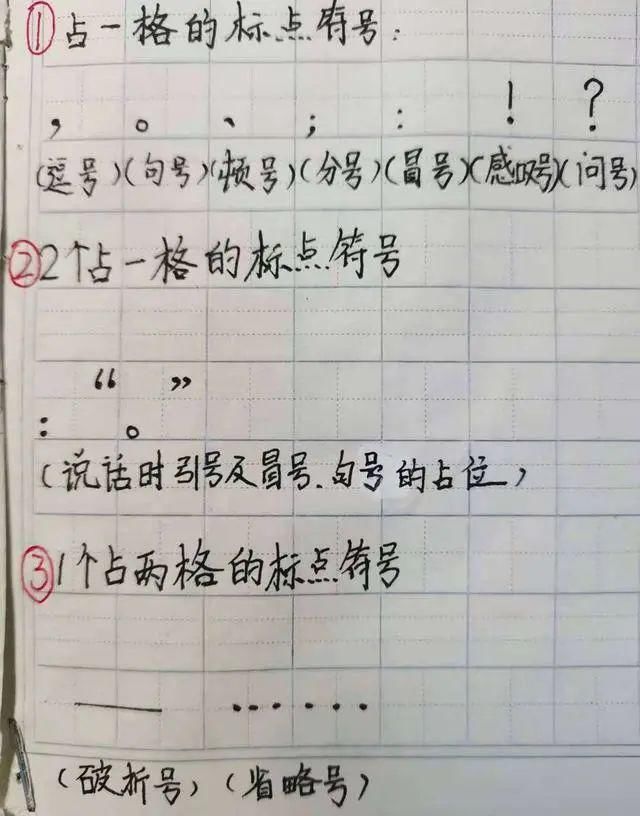 ①占一格的标点符号：
，。、；：！？
(逗号)(句号)(顿号)(分号)(冒号)(感叹号)(问号)
②2个占一格的标点符号
“ ”
： 。
(说话时引号及冒号、句号的占位)
③1个占两格的标点符号
—— ……
(破折号)(省略号)